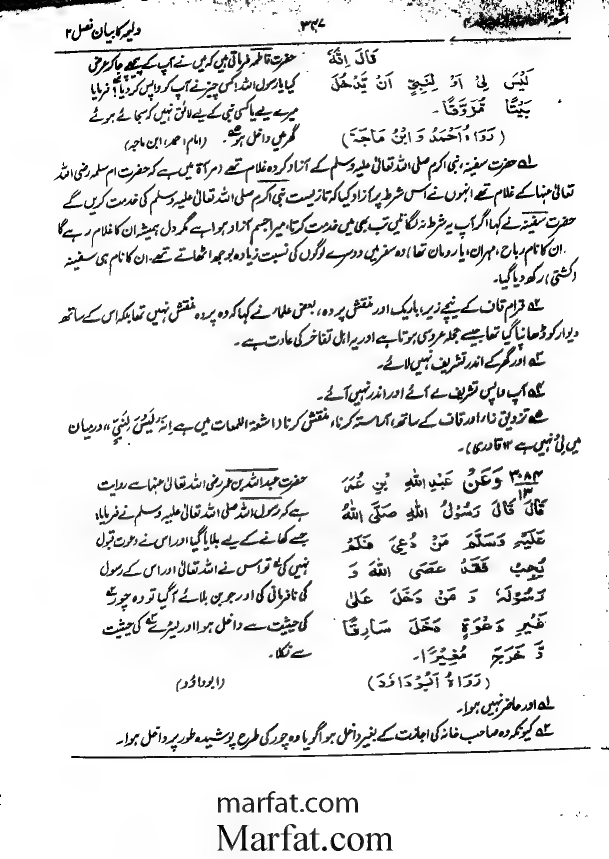 ولیمہ کا بیان فصل ۲
۳۴۷
قَالَ اِنَّهٗ
لَيْسَ لِيْ اَوْ لِنَبِيٍّ اَنْ يَّدْخُلَ
بَيْتًا مُّزَوَّقًا۔
(رَوَاهُ اَحْمَدُ وَ ابْنُ مَاجَةَ)
حضرت فاطمہ فرماتی ہیں کہ میں نے آپ کے پیچھے جا کر عرض
کیا یا رسول اللہ! کس چیز نے آپ کو واپس کر دیا؟ فرمایا
میرے لیے یا کسی نبی کے لیے لائق نہیں کہ سجائے ہوئے
گھر میں داخل ہو۔ (امام احمد، ابن ماجہ)
۱؎ حضرت سفینہ، نبی اکرم صلی اللہ تعالیٰ علیہ وسلم کے آزاد کردہ غلام تھے (مرآۃ میں ہے کہ حضرت ام سلمہ رضی اللہ
تعالیٰ عنہا کے غلام تھے انہوں نے اس شرط پر آزاد کیا کہ تا زیست نبی اکرم صلی اللہ تعالیٰ علیہ وسلم کی خدمت کریں گے
حضرت سفینہ نے کہا اگر آپ یہ شرط نہ لگائیں تب بھی میں خدمت کرتا، میرا جسم آزاد ہوا ہے مگر دل ہمیشہ ان کا غلام رہے گا
ان کا نام رباح، مہران، یا رومان تھا) وہ سفر میں دوسرے لوگوں کی نسبت زیادہ بوجھ اٹھاتے تھے۔ ان کا نام ہی سفینہ
(کشتی) رکھ دیا گیا۔
۲؎ قرام قاف کے نیچے زیر، باریک اور منقش پردہ، بعض علماء نے کہا کہ وہ پردہ منقش نہیں تھا بلکہ اس کے ساتھ
دیوار کو ڈھانپا گیا تھا جیسے حجلہ عروسی ہوتا ہے اور یہ اہل تفاخر کی عادت ہے۔
۳؎ اور گھر کے اندر تشریف نہیں لائے۔
۴؎ آپ واپس تشریف لے آئے اور اندر نہیں آئے۔
۵؎ تزویق زاء اور قاف کے ساتھ، آراستہ کرنا، منقش کرنا (اشعۃ اللمعات میں ہے اِنَّهٗ لَيْسَ لِنَبِيٍّ،، درمیان
میں لِيْ نہیں ہے ۱۲ قادری)۔
۳۰۸۴ وَعَنْ عَبْدِ اللهِ بْنِ عُمَرَ
۱۳
قَالَ قَالَ رَسُوْلُ اللهِ صَلَّى اللهُ
عَلَيْهِ وَسَلَّمَ مَنْ دُعِيَ فَلَمْ
يُجِبْ فَقَدْ عَصَى اللهَ وَ
رَسُوْلَهٗ وَ مَنْ دَخَلَ عَلٰى
غَيْرِ دَعْوَةٍ دَخَلَ سَارِقًا
وَّ خَرَجَ مُغِيْرًا۔
(رَوَاهُ اَبُوْ دَاوٗدَ)
حضرت عبداللہ بن عمر رضی اللہ تعالیٰ عنہما سے روایت
ہے کہ رسول اللہ صلی اللہ تعالیٰ علیہ وسلم نے فرمایا،
جسے کھانے کے لیے بلایا گیا اور اس نے دعوت قبول
نہیں کی۱؎ تو اس نے اللہ تعالیٰ اور اس کے رسول
کی نافرمانی کی اور جو بن بلائے آ گیا تو وہ چور۲؎
کی حیثیت سے داخل ہوا اور لیٹرے۳؎ کی حیثیت
سے نکلا۔
(ابوداؤد)
۱؎ اور حاضر نہیں ہوا۔
۲؎ کیونکہ وہ صاحب خانہ کی اجازت کے بغیر داخل ہوا گویا وہ چور کی طرح پوشیدہ طور پر داخل ہوا۔
marfat.com
Marfat.com